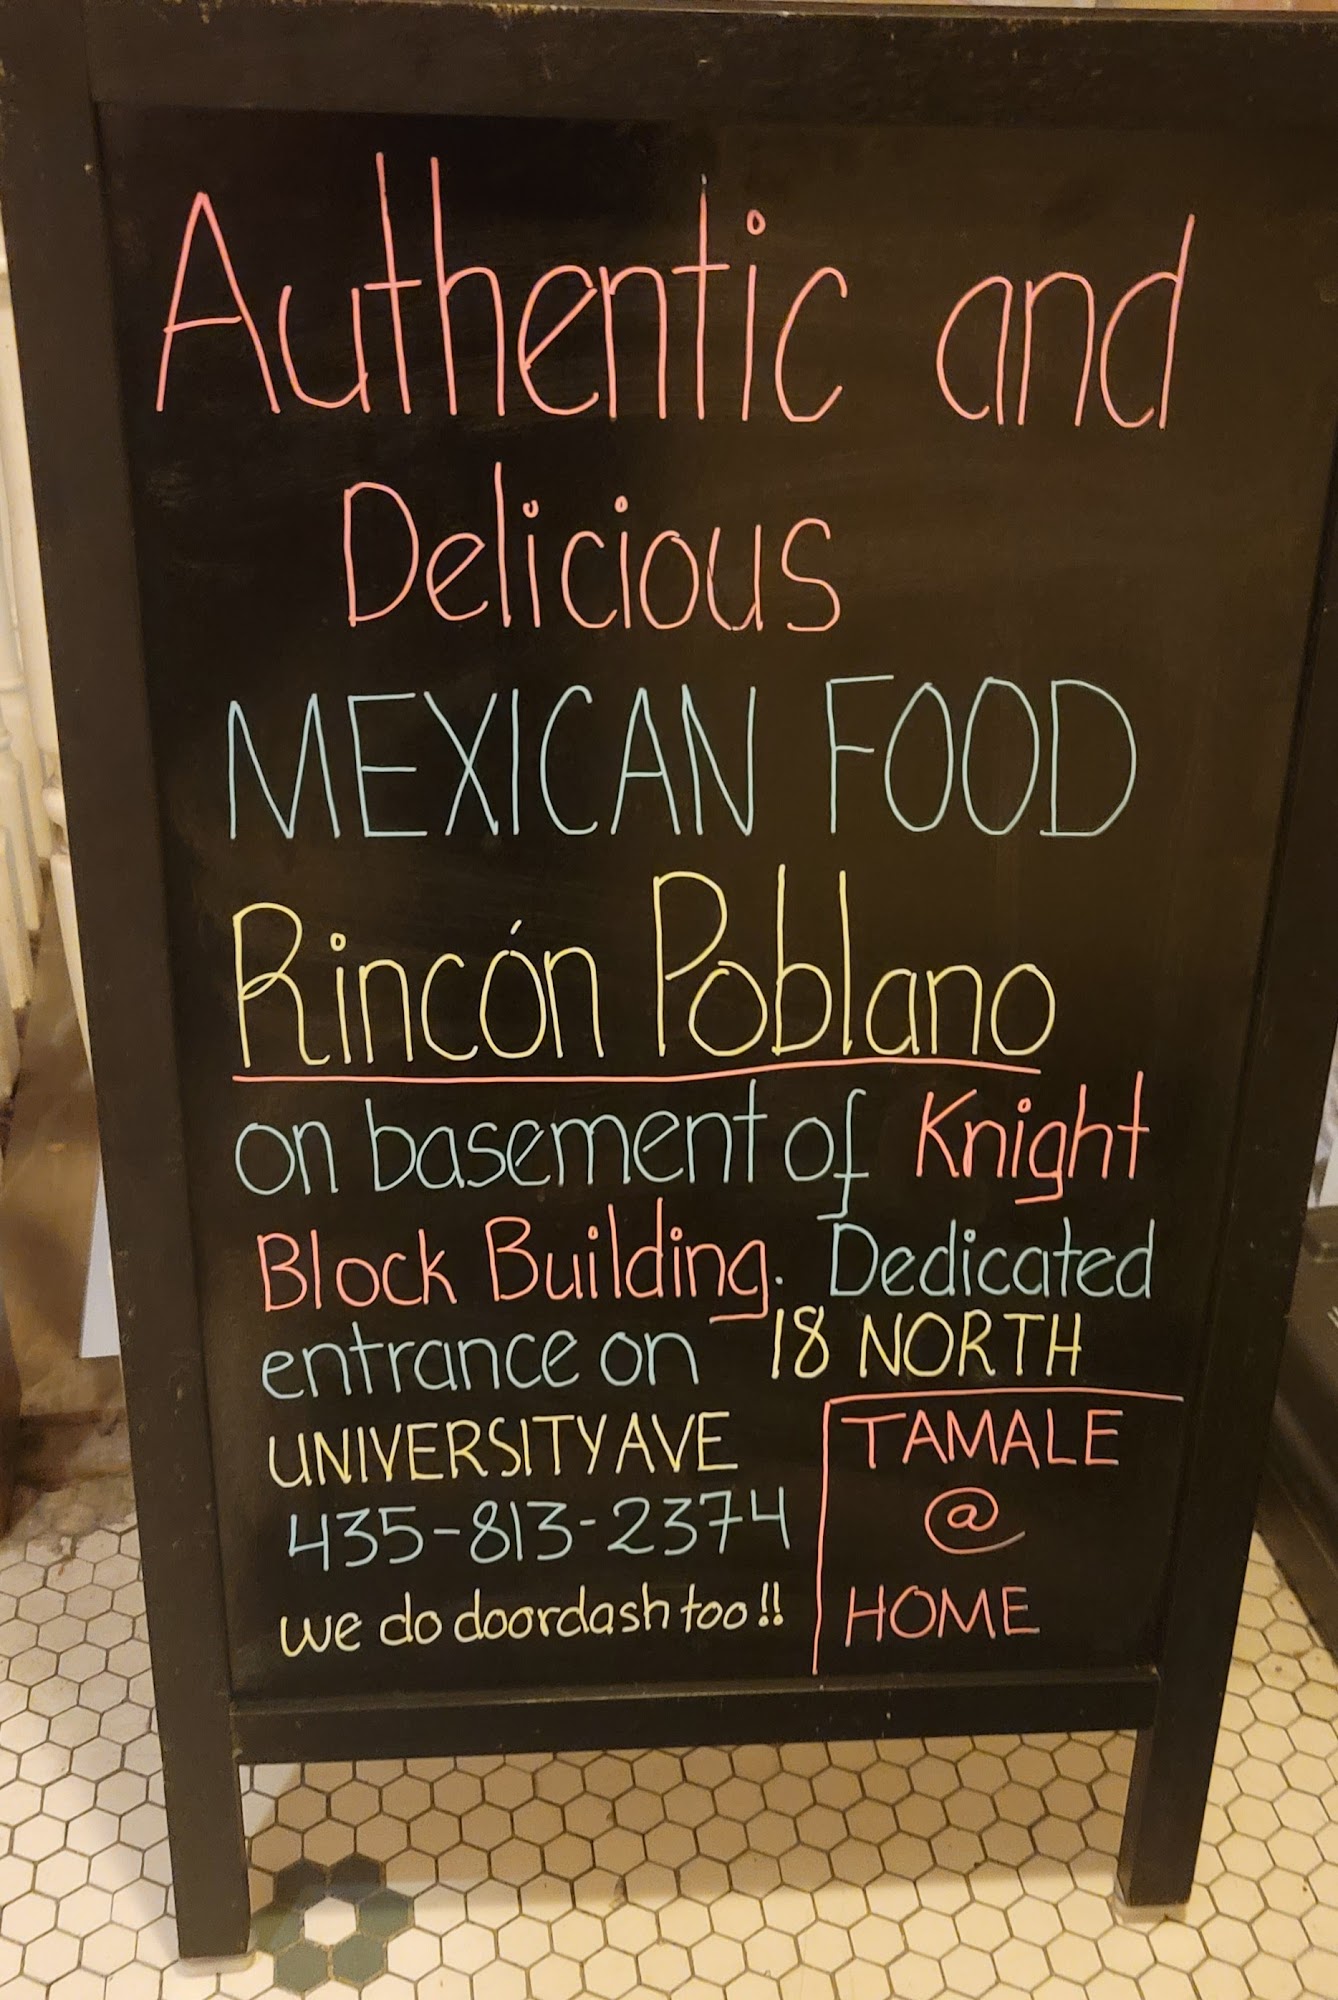 Authentic and
Delicious
MEXICAN FOOD
Rincón Poblano
on basement of Knight
Block Building. Dedicated
entrance on 18 NORTH
UNIVERSITY AVE
435-813-2374
we do doordash too!!
TAMALE
@
HOME